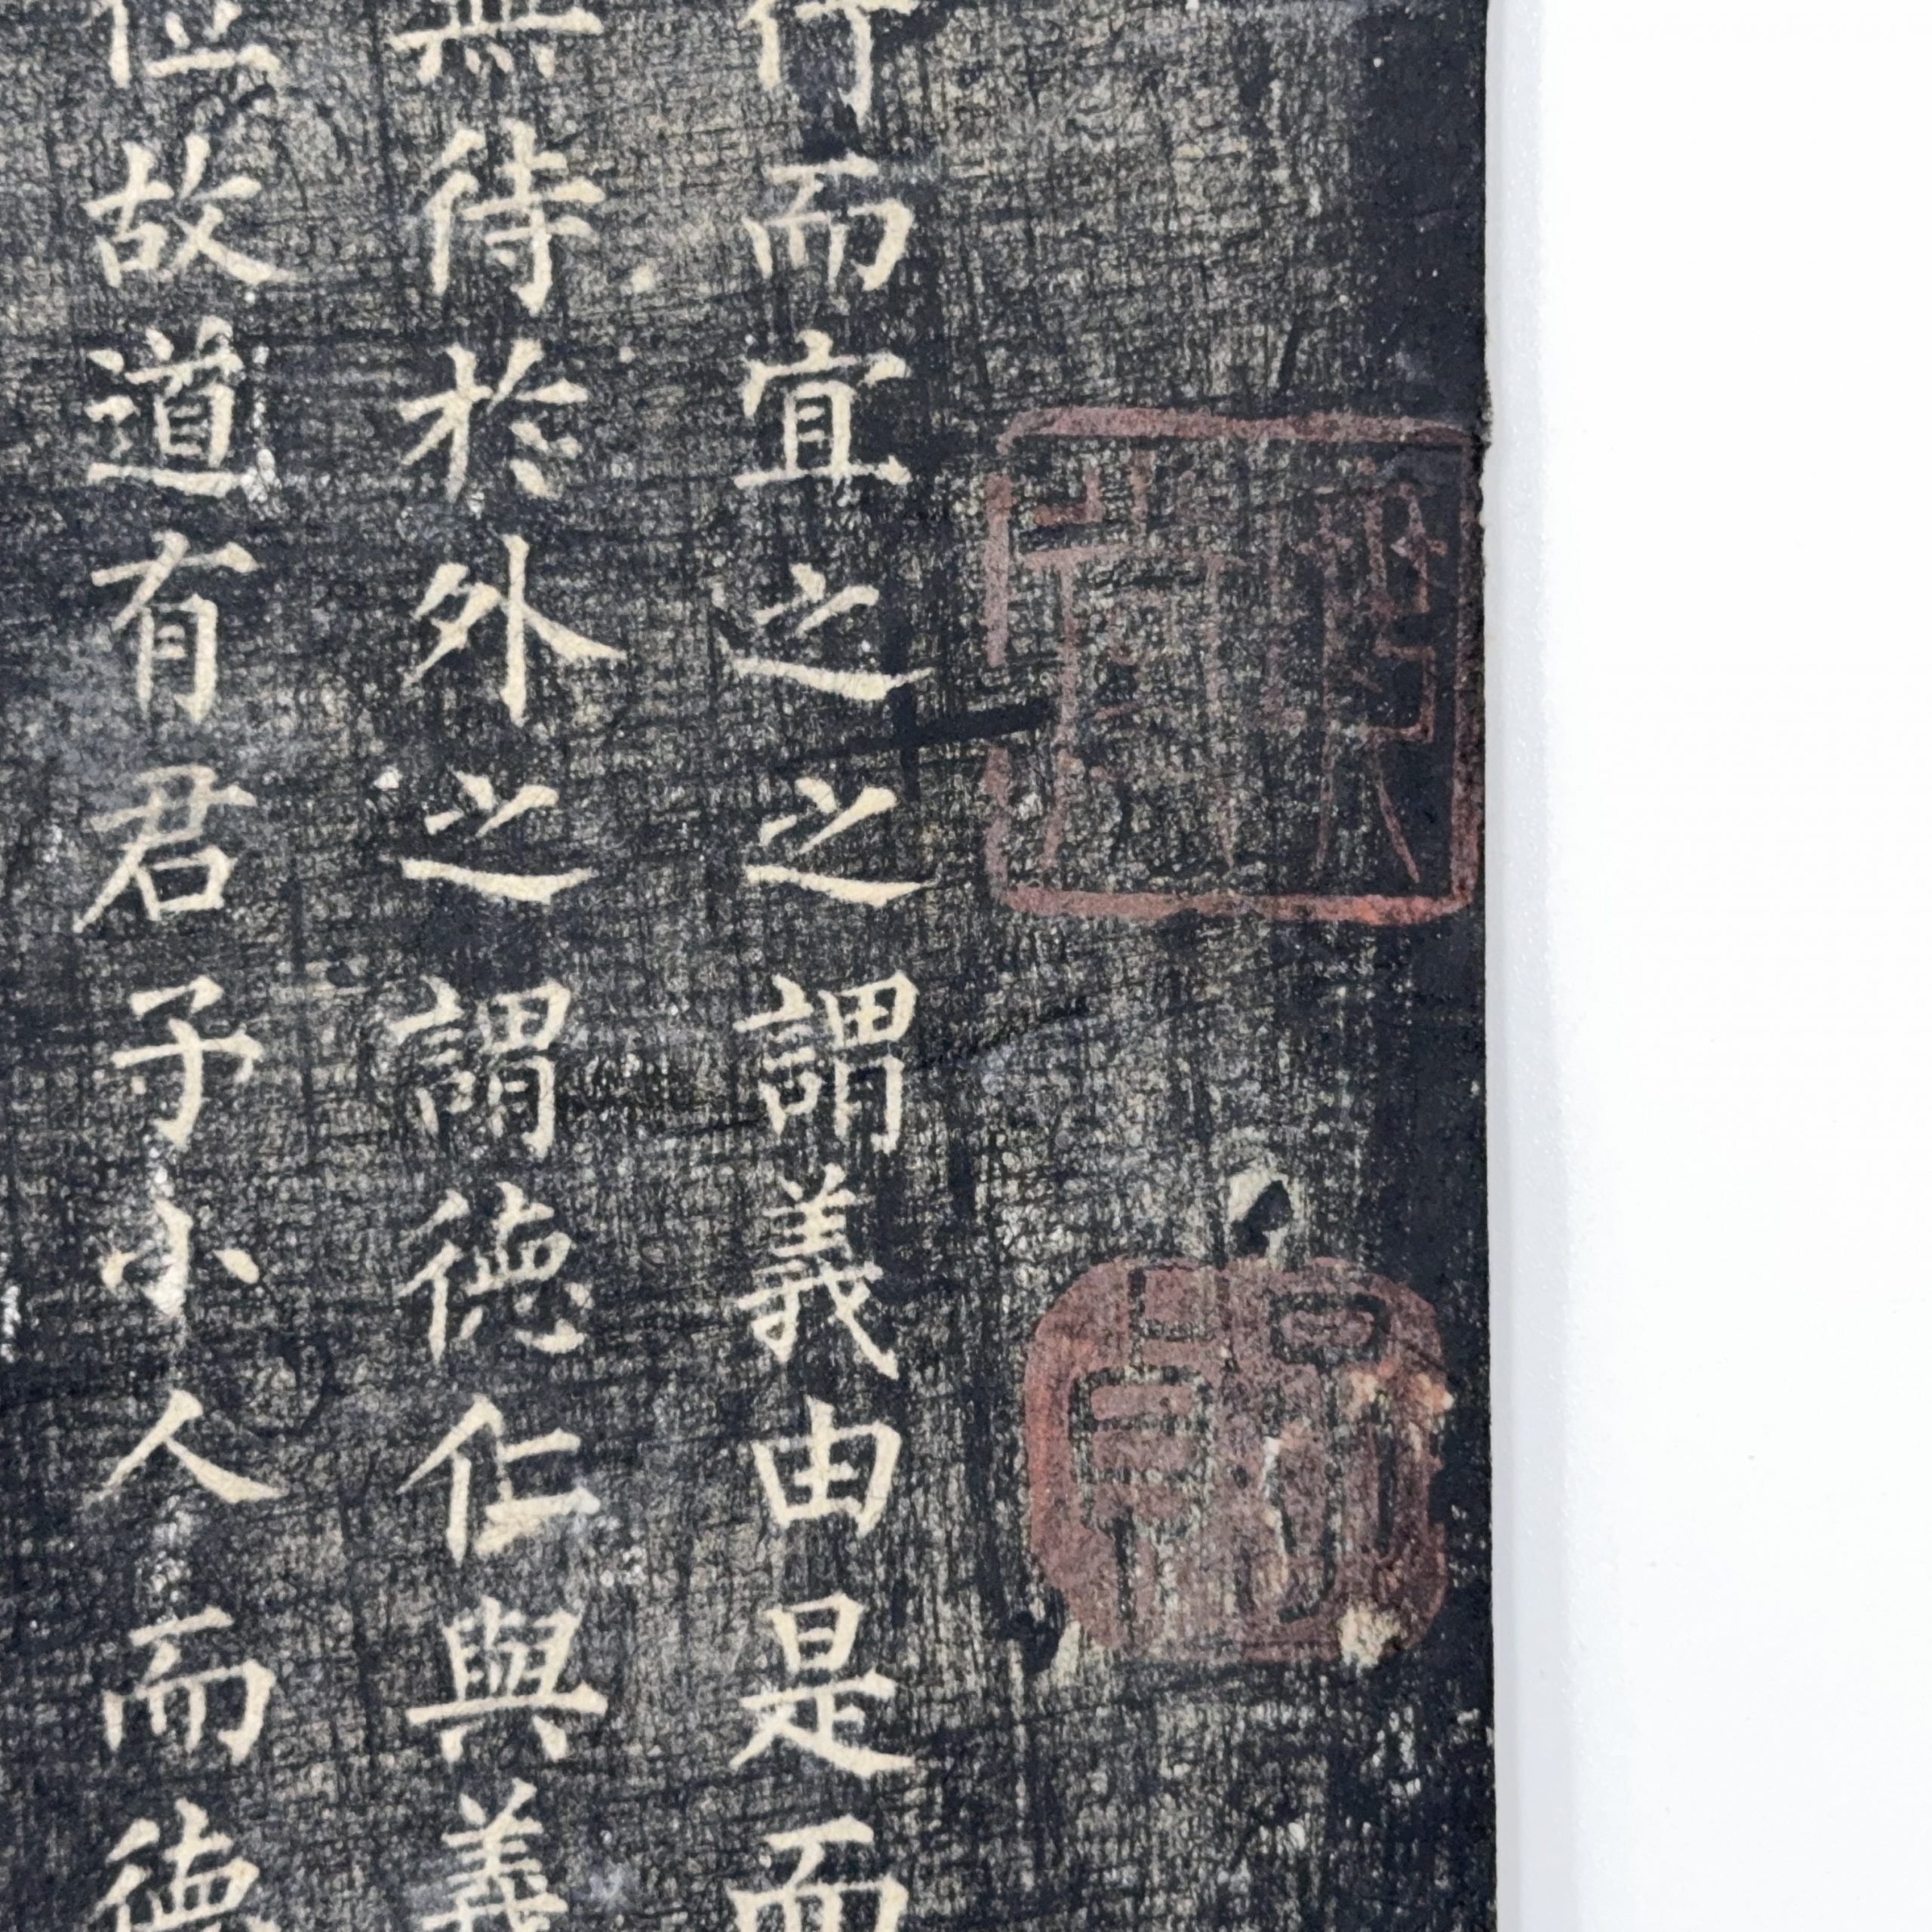 行而宜之之謂義由是而
無待於外之謂德仁與義
位故道有君子小人而德